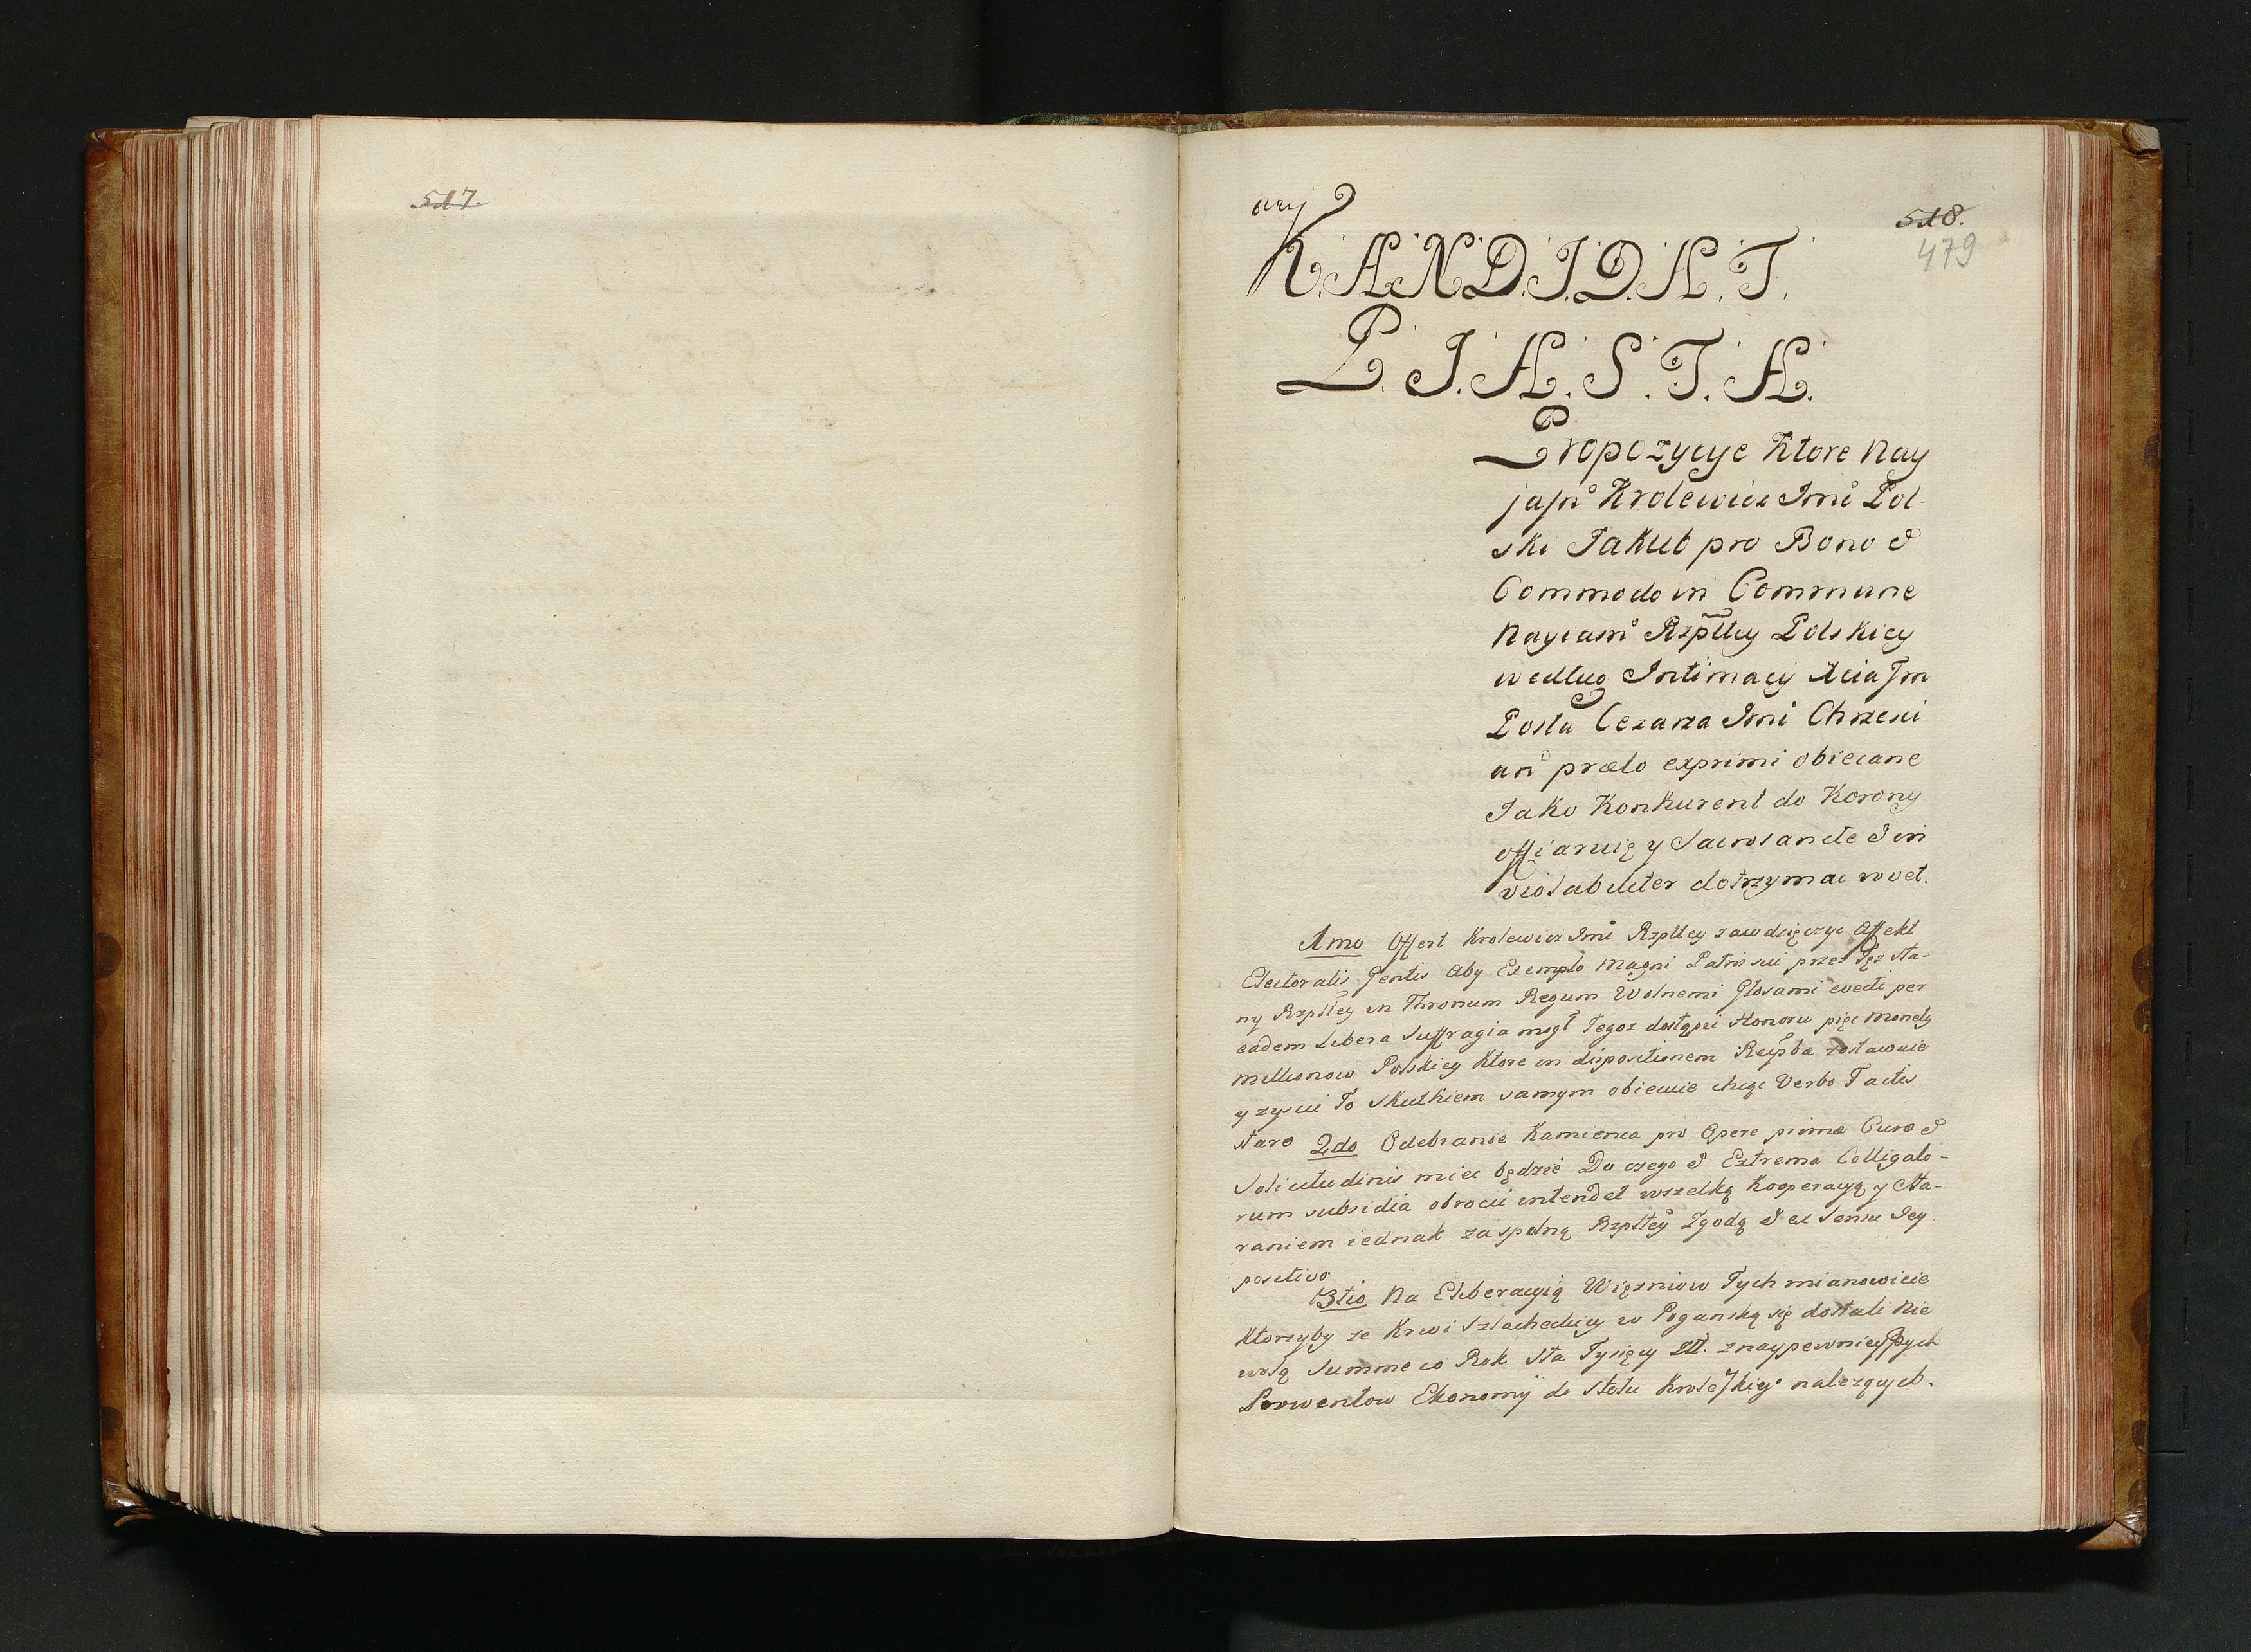 517.
518.
479
K.A.N.D.I.D.A.T.
P.I.A.S.T.A.
Propozycye Ktore Nay
jasn° Krolewicz Jmć Pol-
ski Jakub pro Bono &
Commodo in Commune
Nayiasn° Rzpltey Polskiey
według Intimacij Xcia Jm
Posła Cezarza Jmć Chrzesci
an° prælo exprimi obiecane
Jako Konkurent do Korony
offiaruię y Sacrosancte & in
violabiliter dotrzymac
1mo Offert Krolewicz Jmć Rzpltey zawdzięczyc Affekt
Electoralis Gentis Aby Exemplo Magni Patris sui przez Tęz sta-
ny Rzpltey in Thronum Regum Wolnemi Głosami evecti per
eadem Libera Suffragia mogł Tegoz dostąpic Honoru pięc Monety
Millionow Polskiey Ktore in dispositionem Reipba zostawuie
y zyscic To skutkiem samym obiecuie chcąc Verbo Factis
stare 2do Odebranie Kamienca pro Opere primæ Curæ &
Solicitudinis miec będzie Do czego & Extrema Colligato-
rum subsidia obrocic intendet wszelką Kooperacyą y Sta-
raniem iednak za spolną Rzpltey Zgodą & ex Sensu Jey
positivo
3tio Na Eliberacyią Więzniow Tych mianowicie
Ktorzyby ze Krwi Szlacheckiey w Poganską się dostali Nie
wolą Summe co Rok Sta Tysięcy Złł. z naypewnieyszych
Prowentow Ekonomij do Stołu Krolefkiego nalezących.